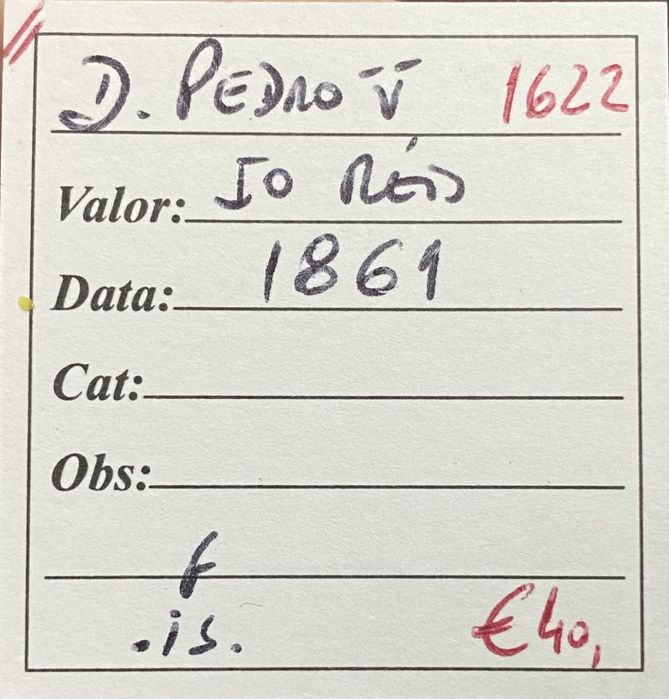 D. PEDRO V 1622
Valor: 50 RÉIS
Data: 1861
Cat:
Obs:
f
.is. €40,